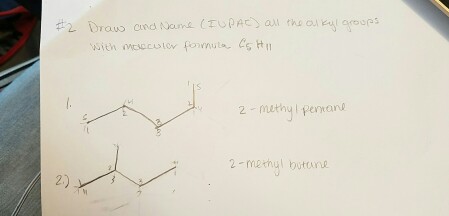 #2 Draw and Name (IUPAC) all the alkyl groups
with molecular formula C5 H11
1.
2-methyl pentane
2.)
2-methyl butane